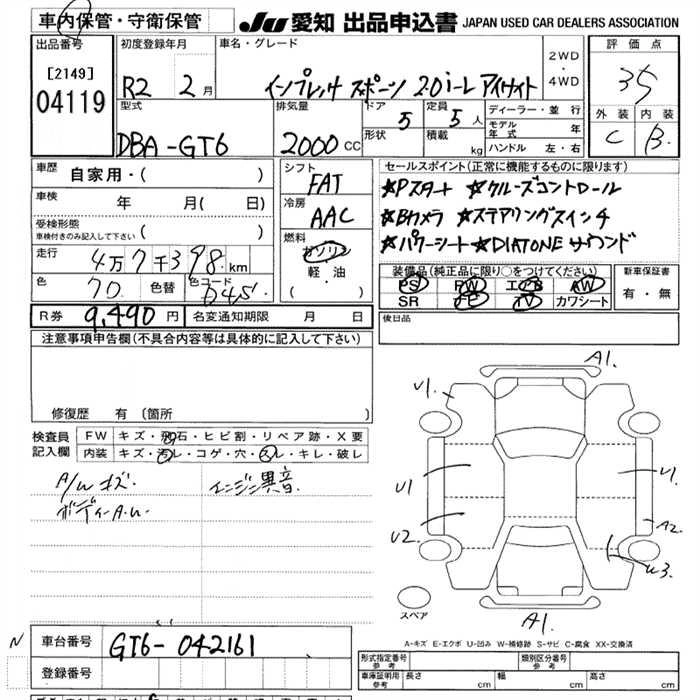 車内保管・守衛保管 JU 愛知 出品申込書 JAPAN USED CAR DEALERS ASSOCIATION
出品番号 初度登録年月 車名・グレード 評価点
[2149] R2 2月 インプレッサ スポーツ 2.0i-L アイサイト 2WD・4WD 3.5
04119 型式 排気量 ドア 定員 ディーラー・並行 外装 内装
DBA-GT6 2000CC 5 5人 モデル年式 年 C B
形状 積載 kg ハンドル 左・右
車歴 自家用・( ) シフト FAT セールスポイント(正常に機能するものに限ります)
車検 年 月( 日) 冷房 AAC ☆Pスタート ☆クルーズコントロール
受検形態 ☆Bカメラ ☆ステアリングスイッチ
車検付きのみ記入して下さい ( ) 燃料 ☆パワーシート ☆DIATONEサウンド
走行 4万7千398km ガソリン
軽・油 装備品(純正品に限り○をつけてください) 新車保証書
色 色替 色コード D4S ・( ) PS PW エアB AW 有・無
SR ナビ TV カワシート
R券 9,490円 名変通知期限 月 日 後日品
注意事項申告欄(不具合内容等は具体的に記入して下さい)
修復歴 有 (箇所
検査員記入欄 FW キズ・飛石・ヒビ割・リペア跡・X要
内装 キズ・汚レ・コゲ・穴・スレ・キレ・破レ
A/W キズ. エンジン異音
ボディーA.U.
A1.
U1.
U1 U1.
U2. A2.
U3.
スペア A1.
A-キズ E-エクボ U-凹み W-補修跡 S-サビ C-腐食 XX-交換済
N 車台番号 GT6-042161
登録番号
形式指定番号参考 類別区分番号参考
車庫証明用参考 長さ cm 幅 cm 高さ cm